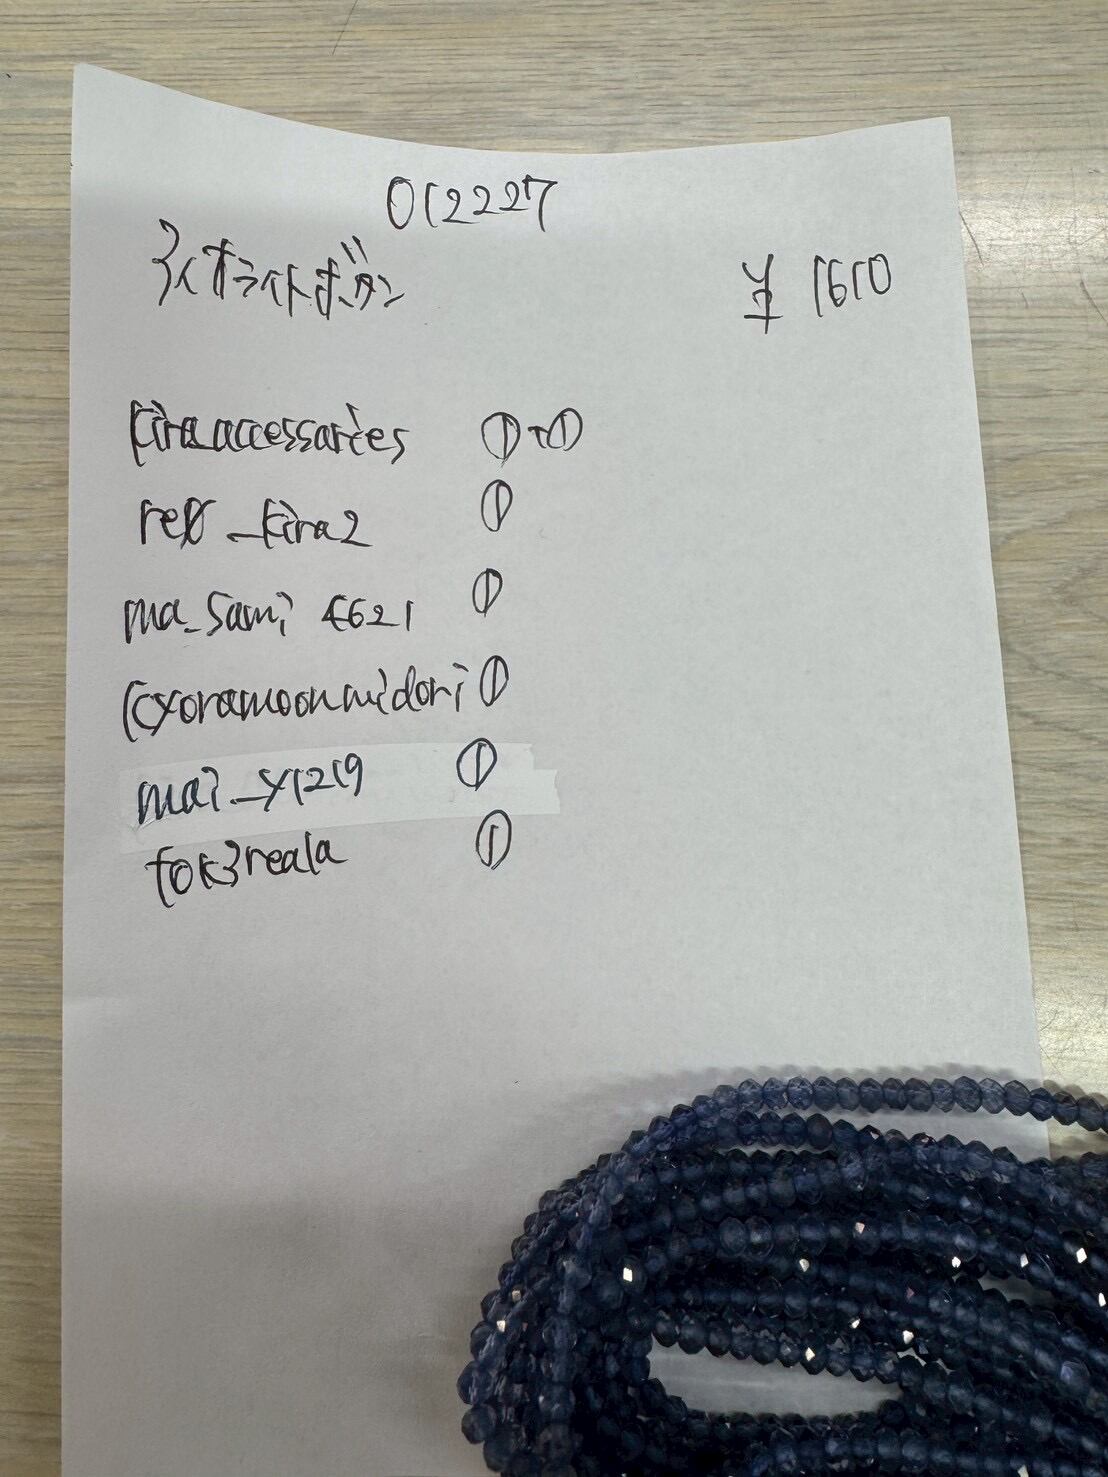 012227
アイオライトボタン
¥1610
kira_accessaries ①+①
re8_kira2 ①
ma_sami 4621 ①
kyoramoonmidori ①
mai_y1219 ①
tok3reala ①